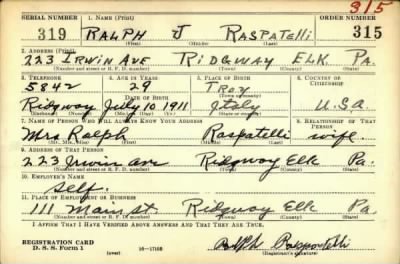 315
SERIAL NUMBER 1. NAME (Print) ORDER NUMBER
319 RALPH J RASPATELLI 315
(First) (Middle) (Last)
2. ADDRESS (Print)
223 IRWIN AVE RIDGWAY ELK PA.
(Number and street or R. F. D. number) (Town) (County) (State)
3. TELEPHONE 4. AGE IN YEARS 5. PLACE OF BIRTH 6. COUNTRY OF CITIZENSHIP
5842 29 Troy
DATE OF BIRTH (Town or county)
Ridgway July 10 1911 Italy U.S.A.
(Exchange) (Mo.) (Day) (Yr.) (State or country)
7. NAME OF PERSON WHO WILL ALWAYS KNOW YOUR ADDRESS 8. RELATIONSHIP OF THAT PERSON
Mrs Ralph Raspatelli wife.
(Mr., Mrs., Miss) (First) (Middle) (Last)
9. ADDRESS OF THAT PERSON
223 Irwin ave Ridgway Elk Pa.
(Number and street or R. F. D. number) (Town) (County) (State)
10. EMPLOYER'S NAME
Self.
11. PLACE OF EMPLOYMENT OR BUSINESS
111 Main st. Ridgway Elk Pa.
(Number and street or R. F. D. number) (Town) (County) (State)
I AFFIRM THAT I HAVE VERIFIED ABOVE ANSWERS AND THAT THEY ARE TRUE.
REGISTRATION CARD
D. S. S. Form 1 (over) 16—17105 Ralph Raspatelli
(Registrant's signature)